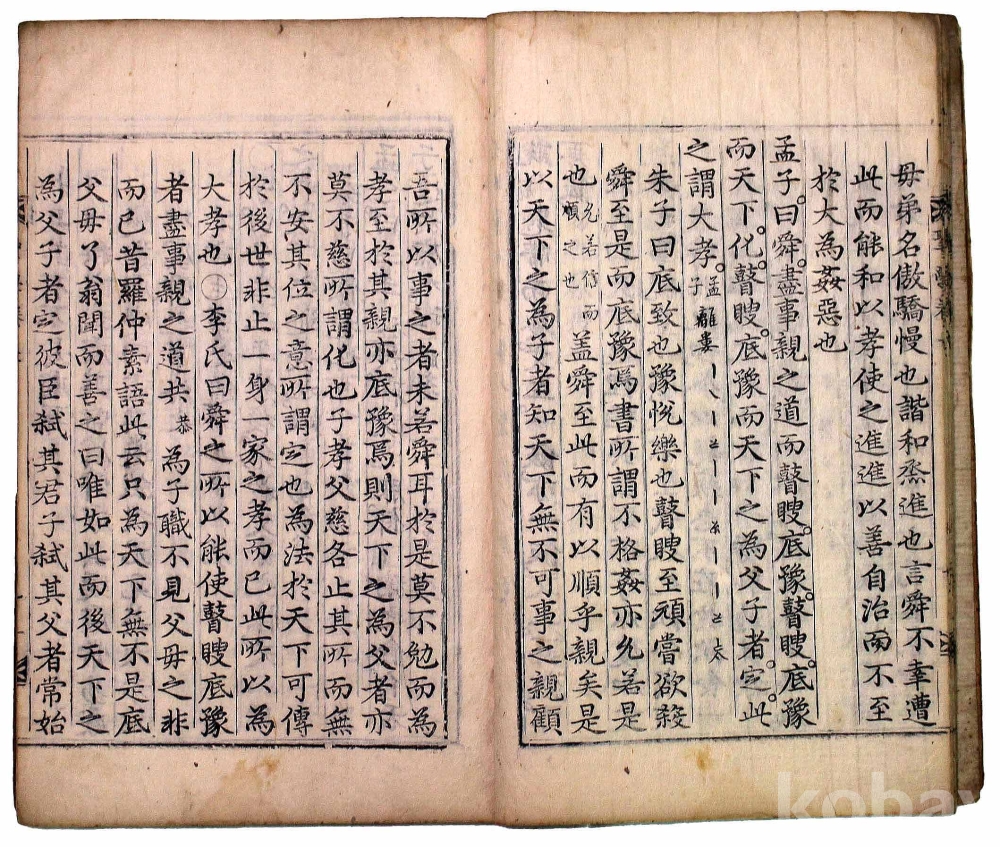 毋弟名傲驕慢也諧和烝進也言舜不幸遭
此而能和以孝使之進進以善自治而不至
於大為姦惡也
孟子曰。舜。盡事親之道而瞽瞍。底豫。瞽瞍。底豫
而天下。化。瞽瞍。底豫而天下之為父子者。㝎。此
之謂大孝。孟子離婁
朱子曰底致也豫悅樂也瞽瞍至頑嘗欲殺
舜至是而底豫焉書所謂不格姦亦允若是
也允若信而順之也盖舜至此而有以順乎親矣是
以天下之為子者知天下無不可事之親顧
吾所以事之者未若舜耳於是莫不勉而為
孝至於其親亦底豫焉則天下之為父者亦
莫不慈所謂化也子孝父慈各止其所而無
不安其位之意所謂㝎也為法於天下可傳
於後世非止一身一家之孝而已此所以為
大孝也○李氏曰舜之所以能使瞽瞍底豫
者盡事親之道共恭為子職不見父毋之非
而已昔羅仲素語此云只為天下無不是底
父毋了翁聞而善之曰唯如此而後天下之
為父子者㝎彼臣弑其君子弑其父者常始
kobay